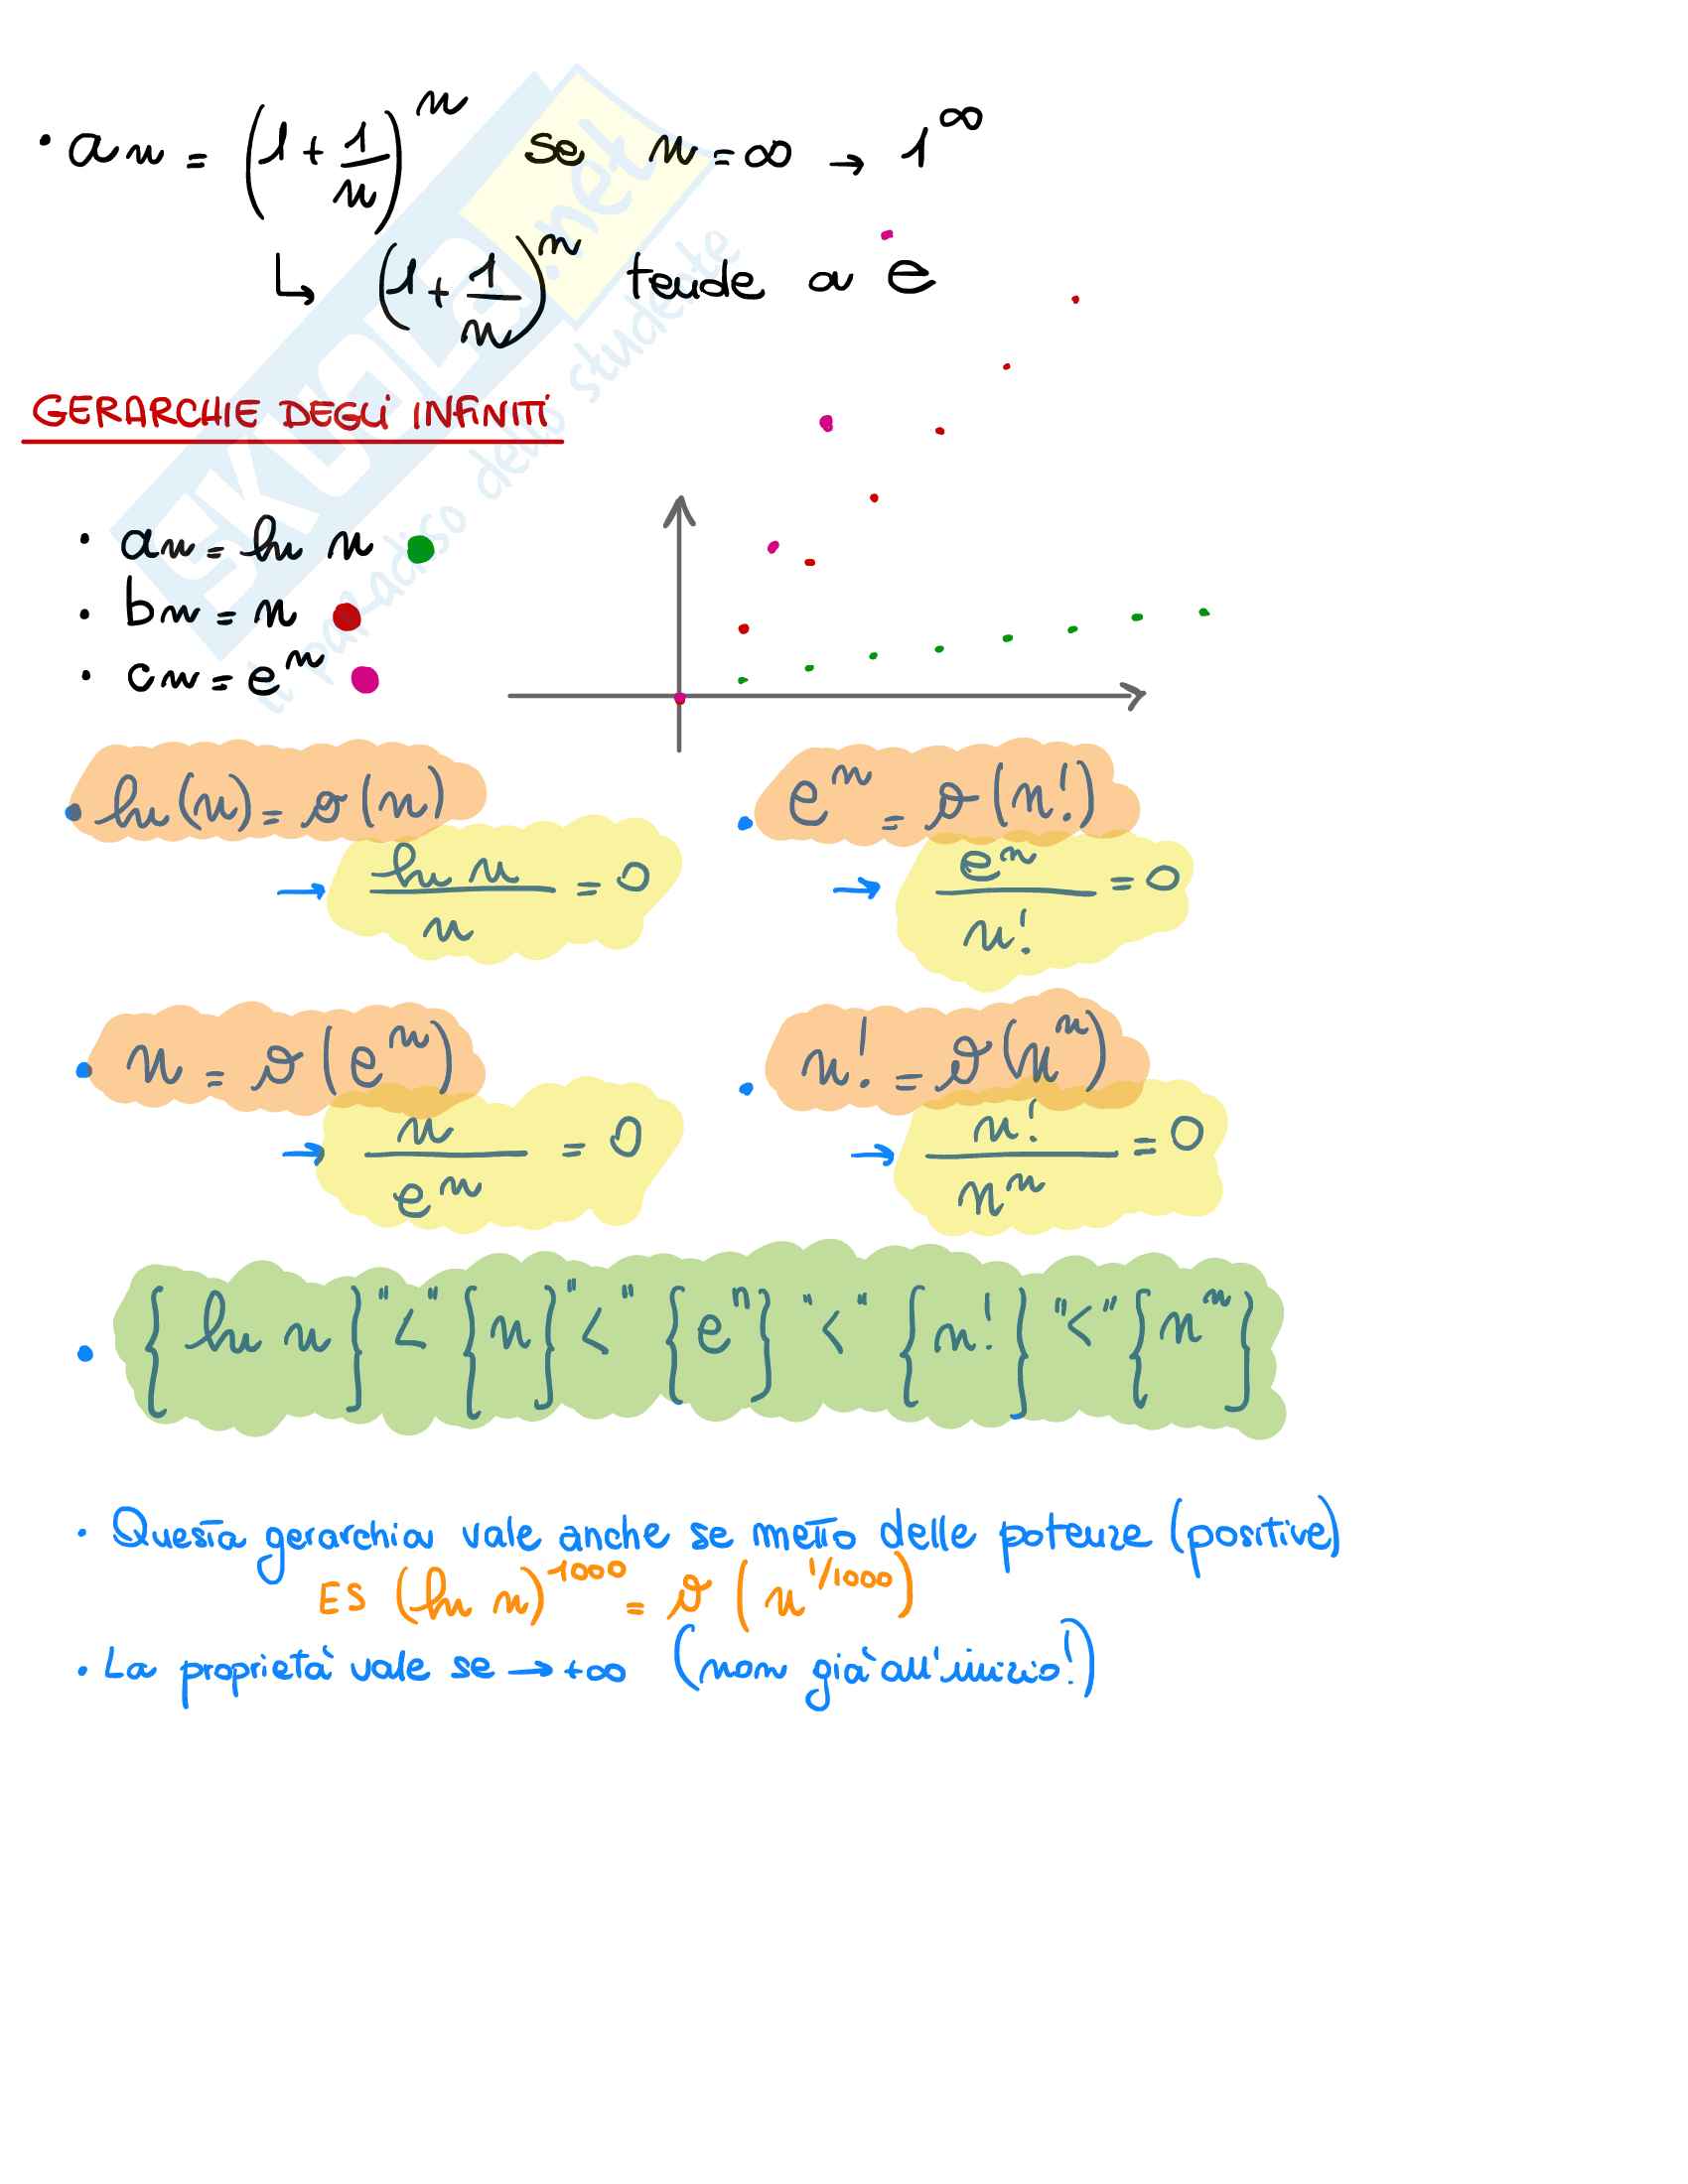 • an = (1 + 1/n)^n se n = ∞ → 1^∞
↳ (1 + 1/n)^n tende a e
GERARCHIE DEGLI INFINITI
• an = ln n
• bn = n
• cn = e^n
• ln(n) = o(n)
→ ln n / n = 0
• e^n = o(n!)
→ e^n / n! = 0
• n = o(e^n)
→ n / e^n = 0
• n! = o(n^n)
→ n! / n^n = 0
• {ln n} "<" {n} "<" {e^n} "<" {n!} "<" {n^n}
• Questa gerarchia vale anche se metto delle potenze (positive)
ES (ln n)^1000 = o(n^1/1000)
• La proprietà vale se → +∞ (non già all'inizio!)
SKUOLA.net
il paradiso dello studente